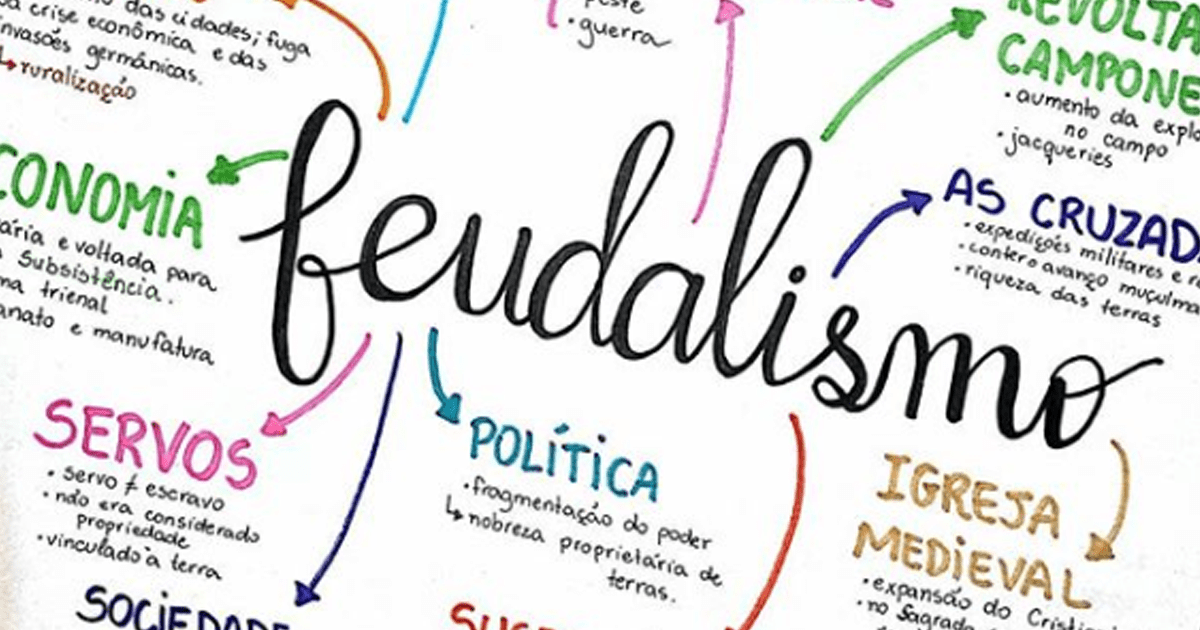 das cidades; fuga
crise econômica e das
invasões germânicas.
↳ruralização
peste
• guerra
REVOLTA
CAMPONE
• aumento da explo
no campo
• jacqueries
CONOMIA
ária e voltada para
subsistência.
ma trienal
anato e manufatura
feudalismo
AS CRUZAD
• expedições militares e r
• conter o avanço muçulma
• riqueza das terras
SERVOS
• servo ≠ escravo
• não era considerado
propriedade
• vinculado à terra
POLÍTICA
• fragmentação do poder
↳ nobreza proprietária de
terras.
IGREJA
MEDIEVAL
• expansão do Cristi
• no Sagrado
SOCIEDADE